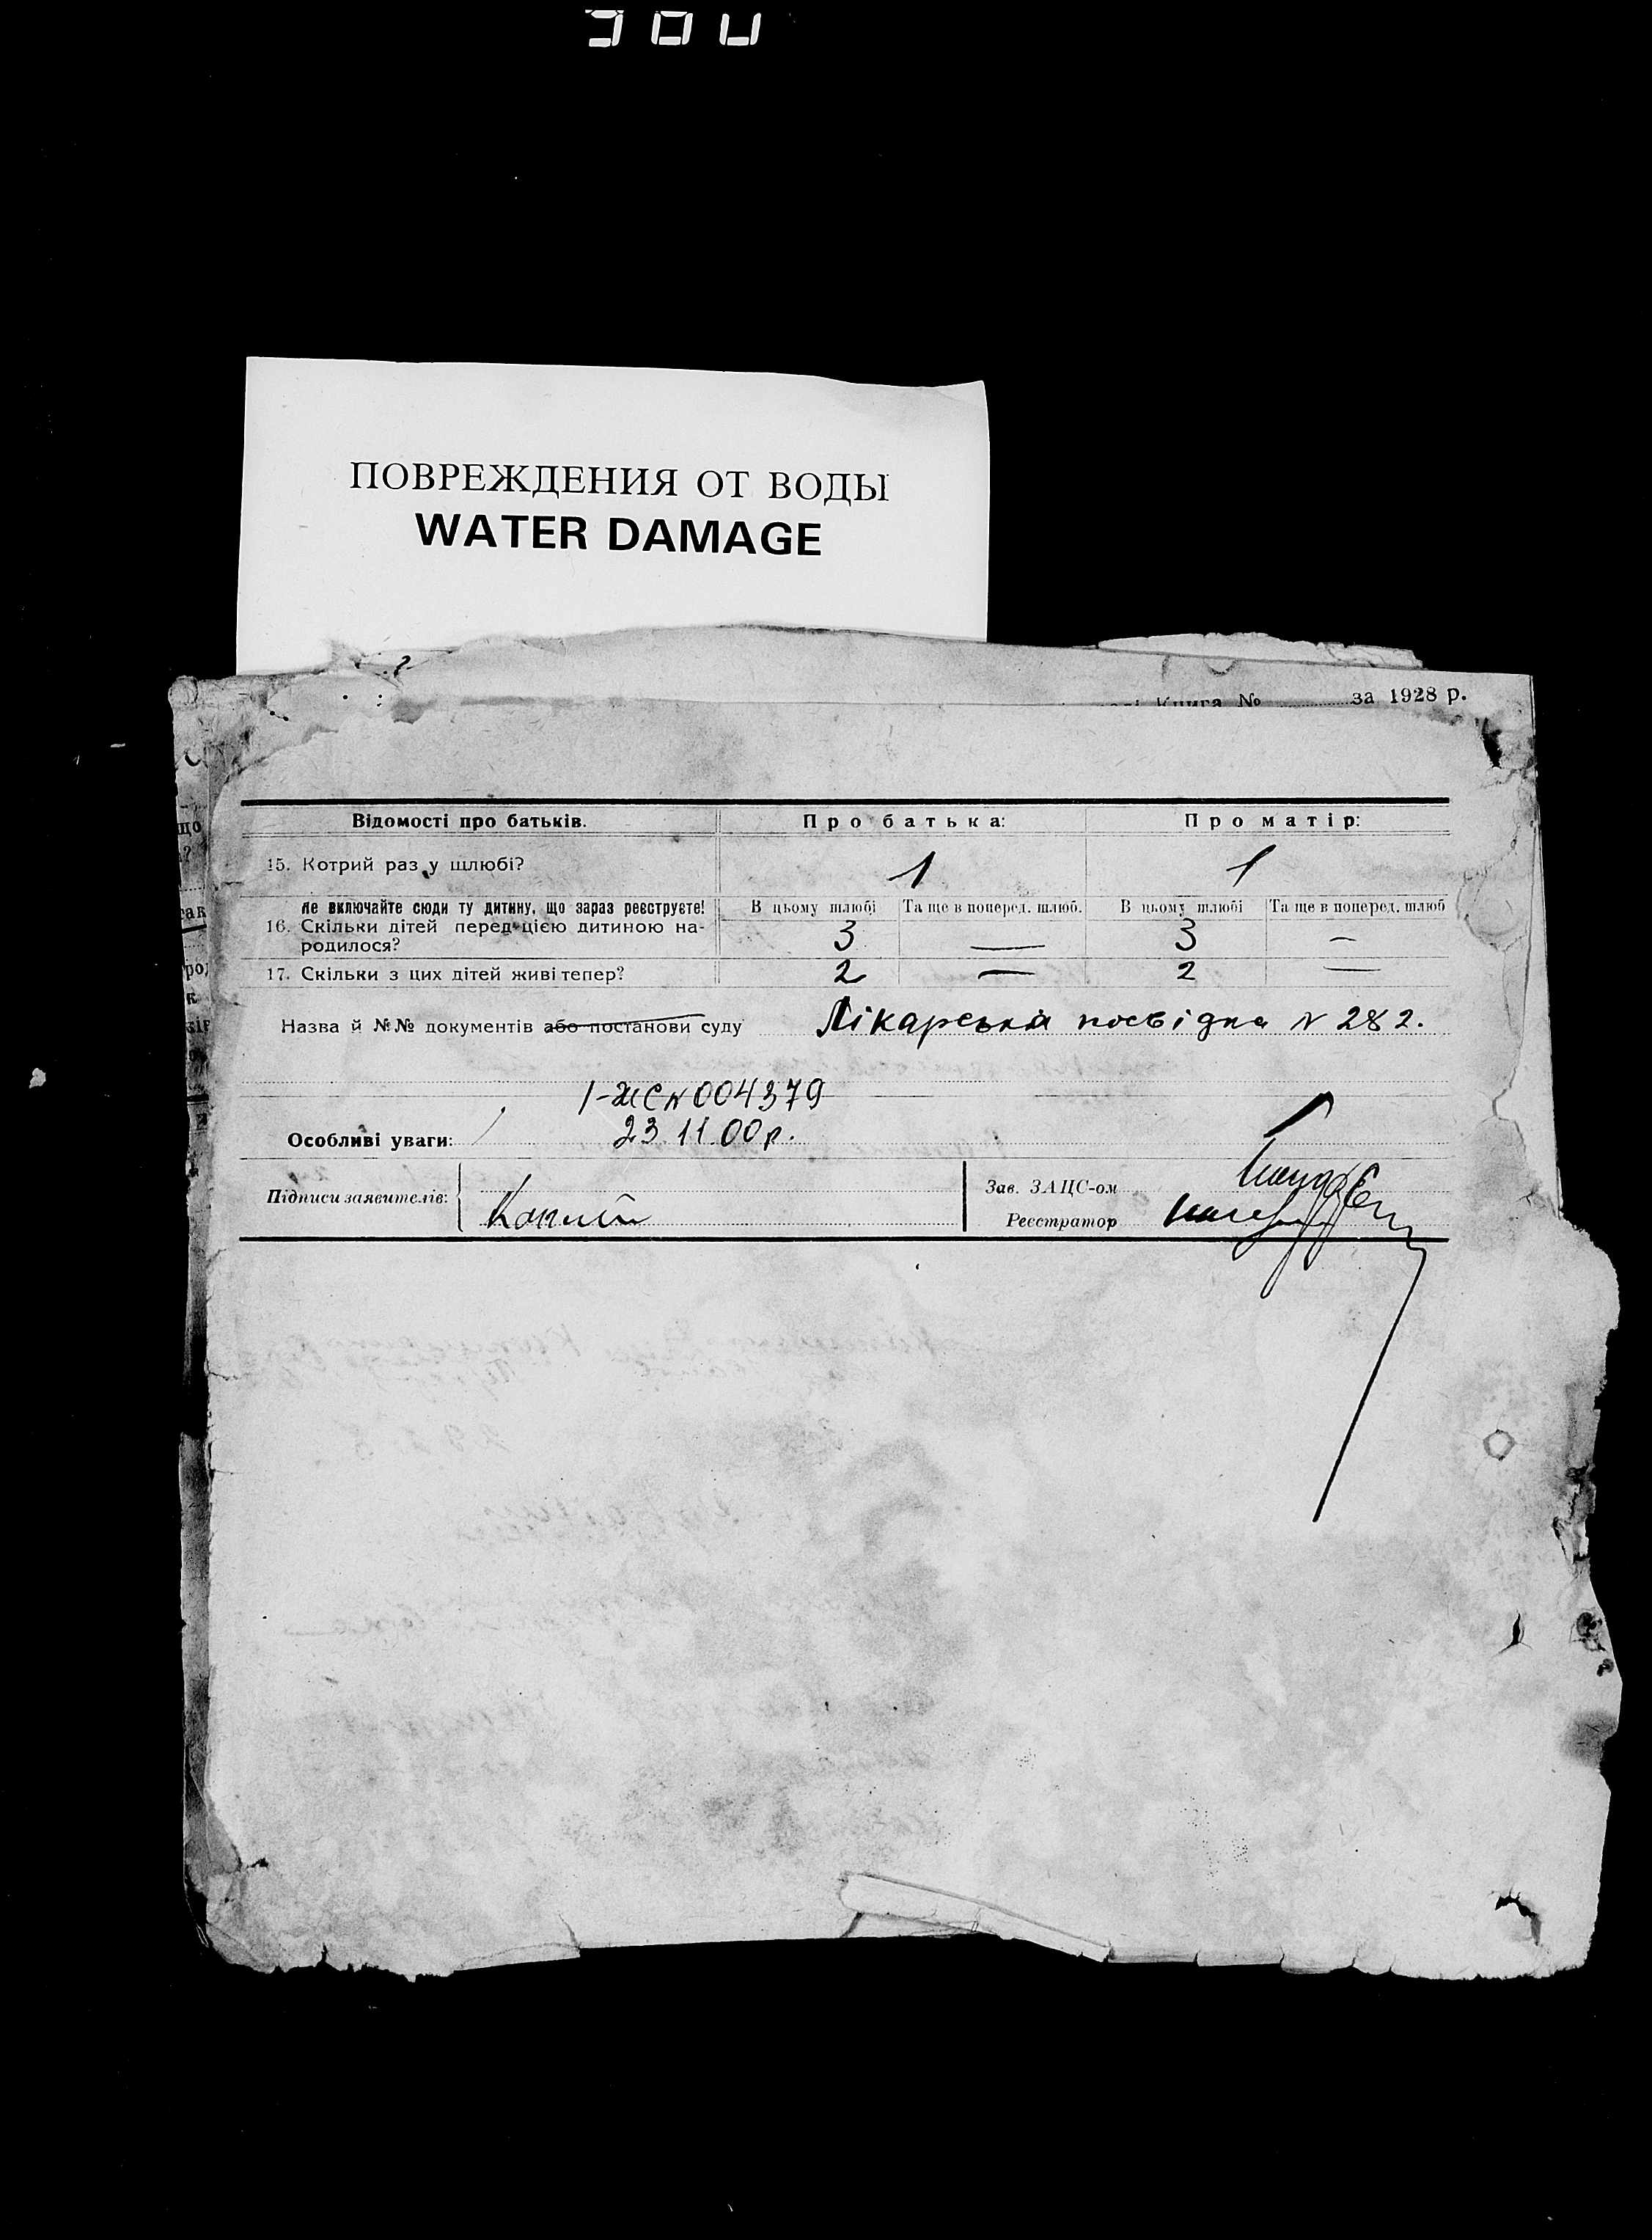 ПОВРЕЖДЕНИЯ ОТ ВОДЫ
WATER DAMAGE
Книга № за 1928 р.
Відомості про батьків. Про батька: Про матір:
15. Котрий раз у шлюбі? 1 1
Не включайте сюди ту дитину, що зараз реєструєте! В цьому шлюбі Та ще в поперед. шлюб. В цьому шлюбі Та ще в поперед. шлюб
16. Скільки дітей перед цією дитиною на- 3 — 3 —
родилося?
17. Скільки з цих дітей живі тепер? 2 — 2 —
Назва й №№ документів або постанови суду Лікарська посвідка N 282.
I-ЖС N 004379
Особливі уваги: 23.11.00р.
Підписи заявителів:
Зав. ЗАЦС-ом
Реєстратор